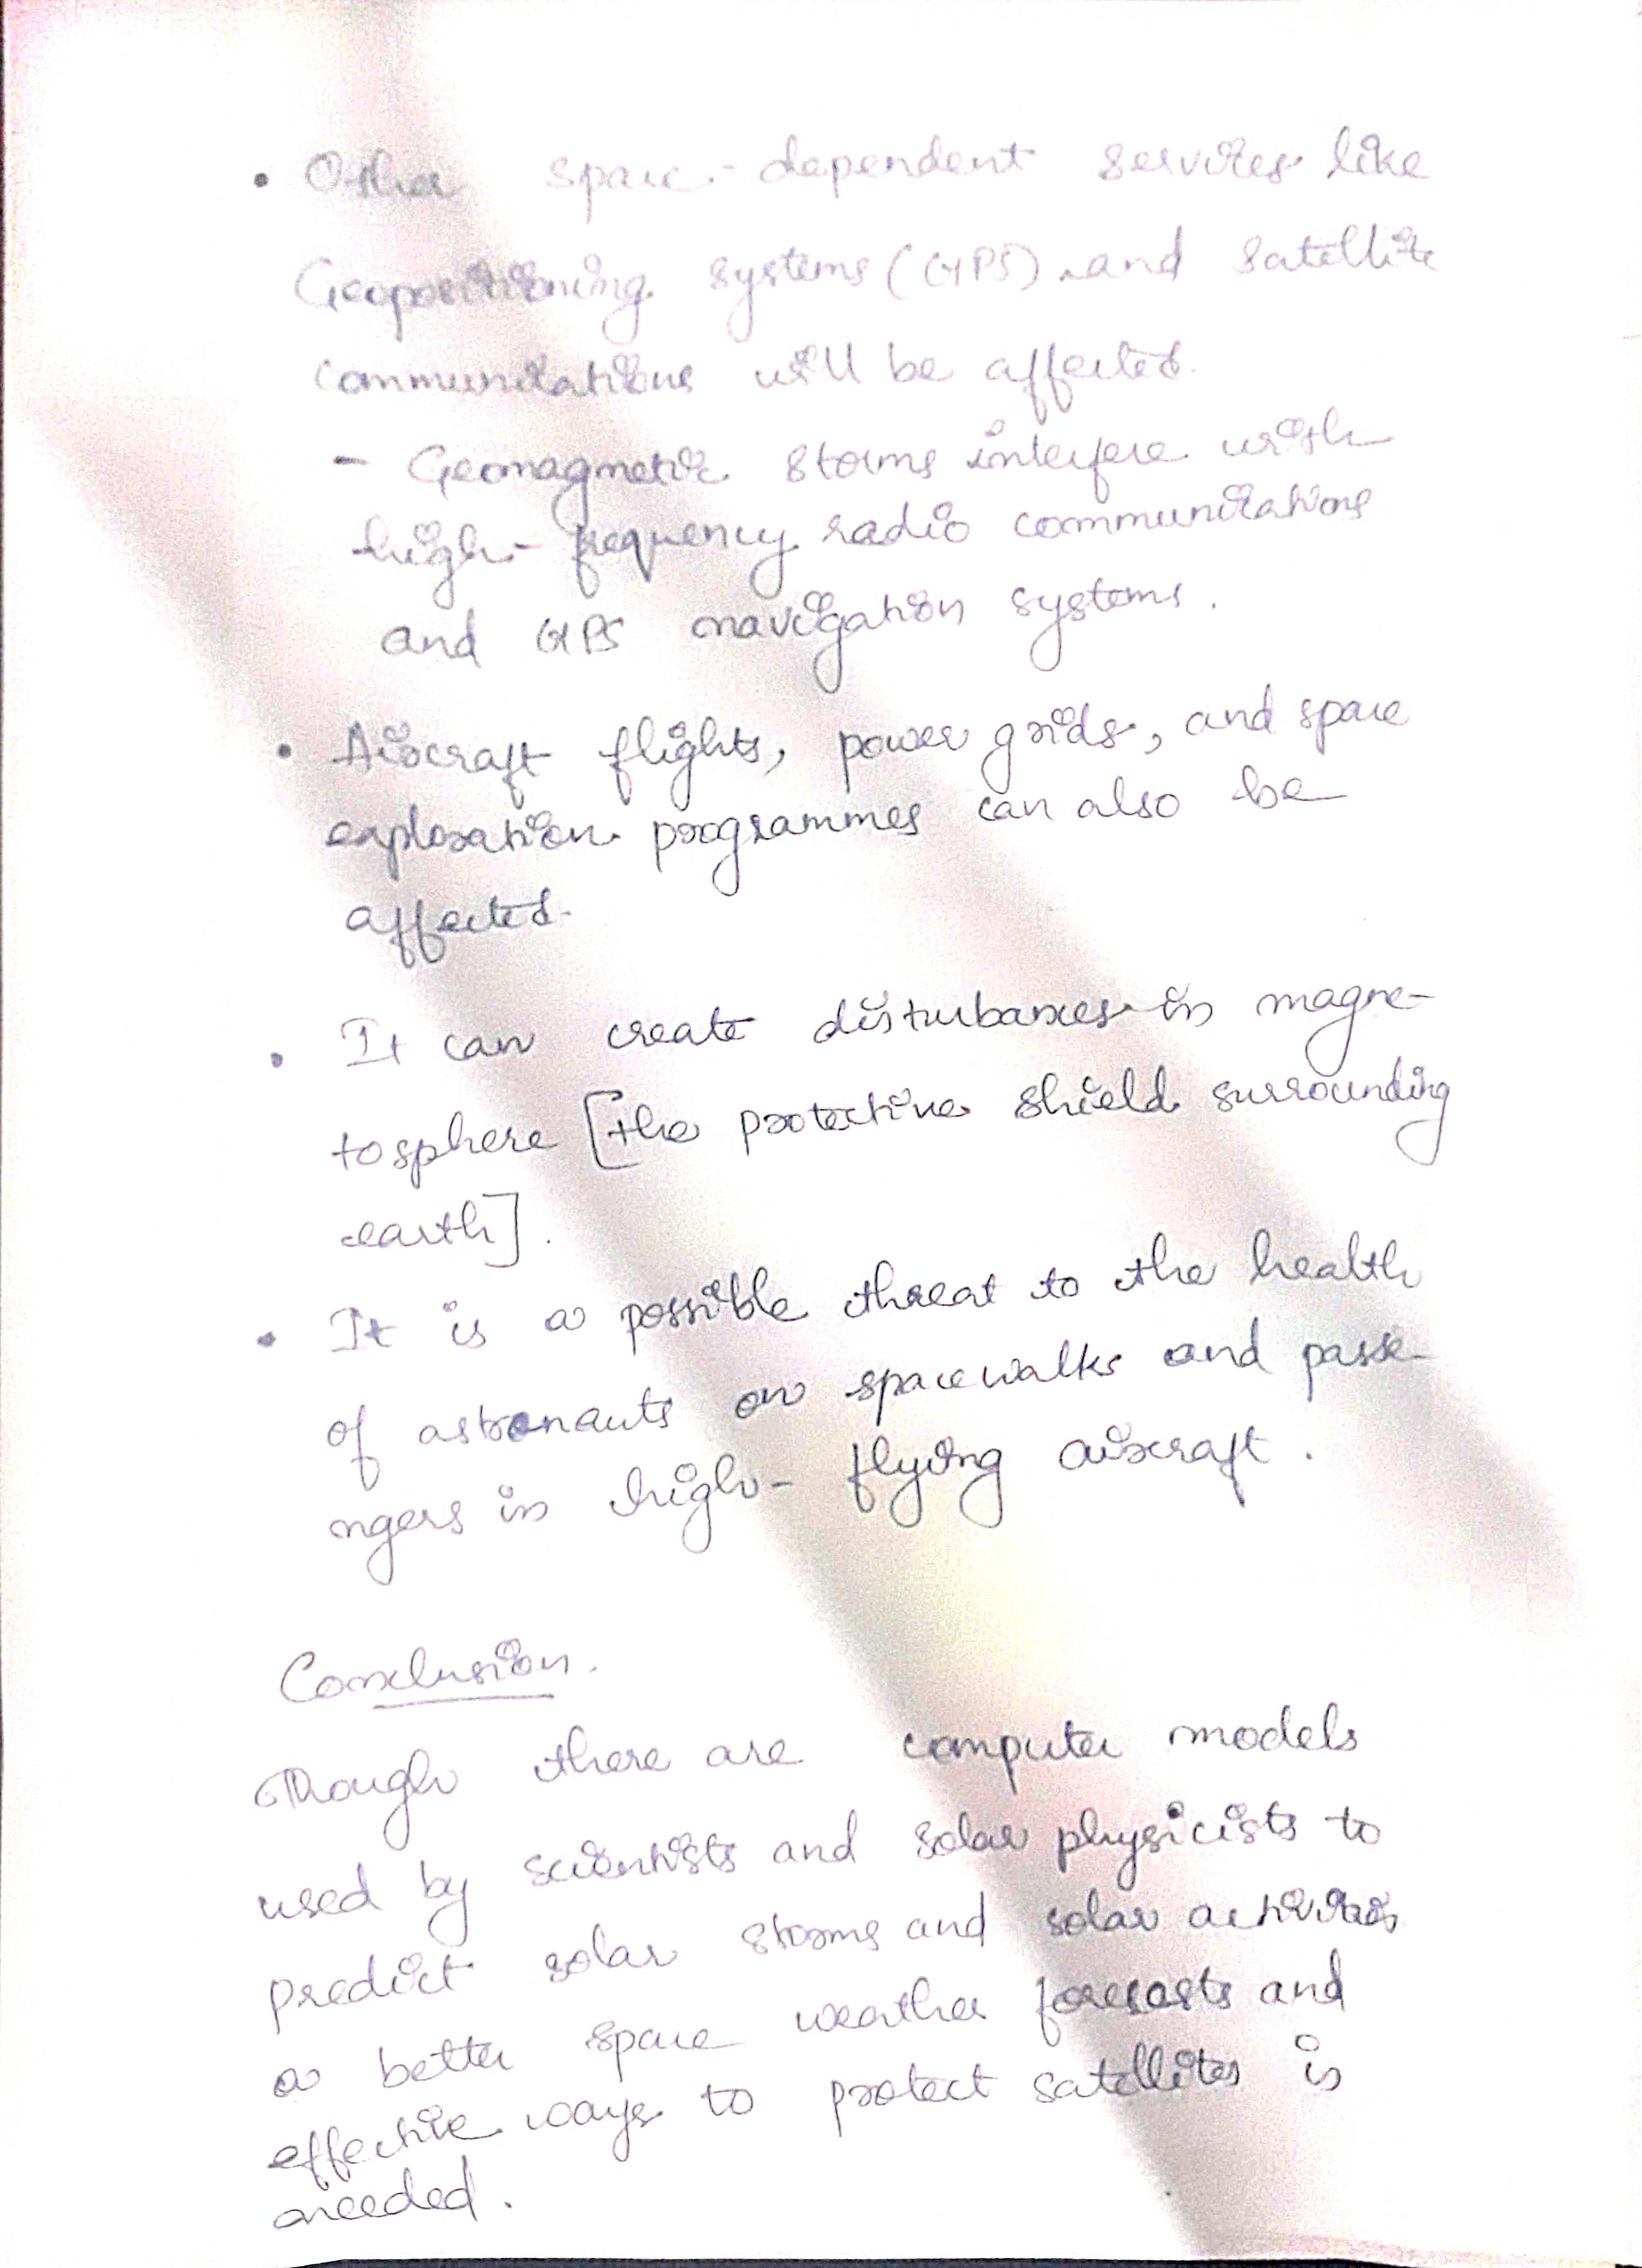 • Other space-dependent services like
Geopositioning systems (GPS) and satellite
communications will be affected.
- Geomagnetic storms interfere with
high-frequency radio communications
and GPS navigation systems.
• Aircraft flights, power grids, and space
exploration programmes can also be
affected.
• It can create disturbances in magne-
tosphere [the protective shield surrounding
earth].
• It is a possible threat to the health
of astronauts on spacewalks and passe-
ngers in high-flying aircraft.
Conclusion.
Though there are computer models
used by scientists and solar physicists to
predict solar storms and solar activities
a better space weather forecasts and
effective ways to protect satellites is
needed.